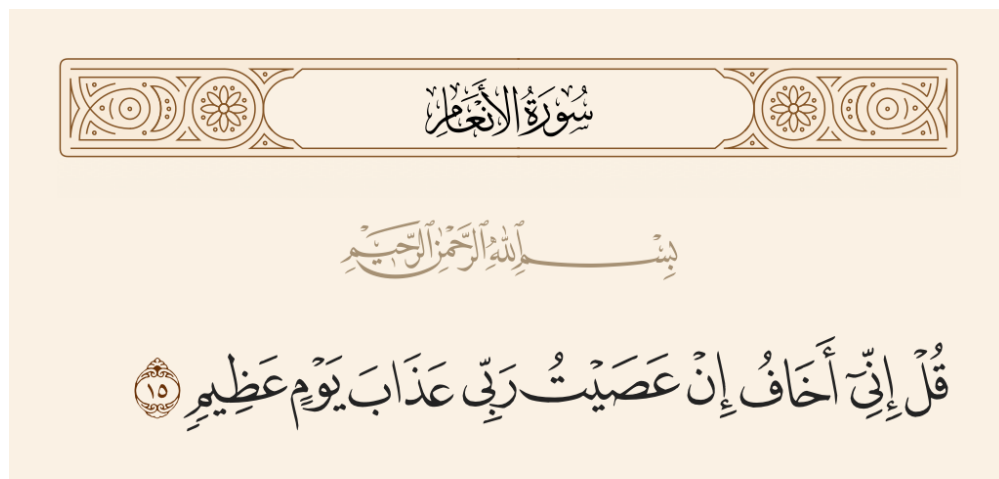 سُورَةُ الأَنْعَامِ
بِسْمِ ٱللَّهِ ٱلرَّحْمَٰنِ ٱلرَّحِيمِ
قُلْ إِنِّىٓ أَخَافُ إِنْ عَصَيْتُ رَبِّى عَذَابَ يَوْمٍ عَظِيمٍ ١٥